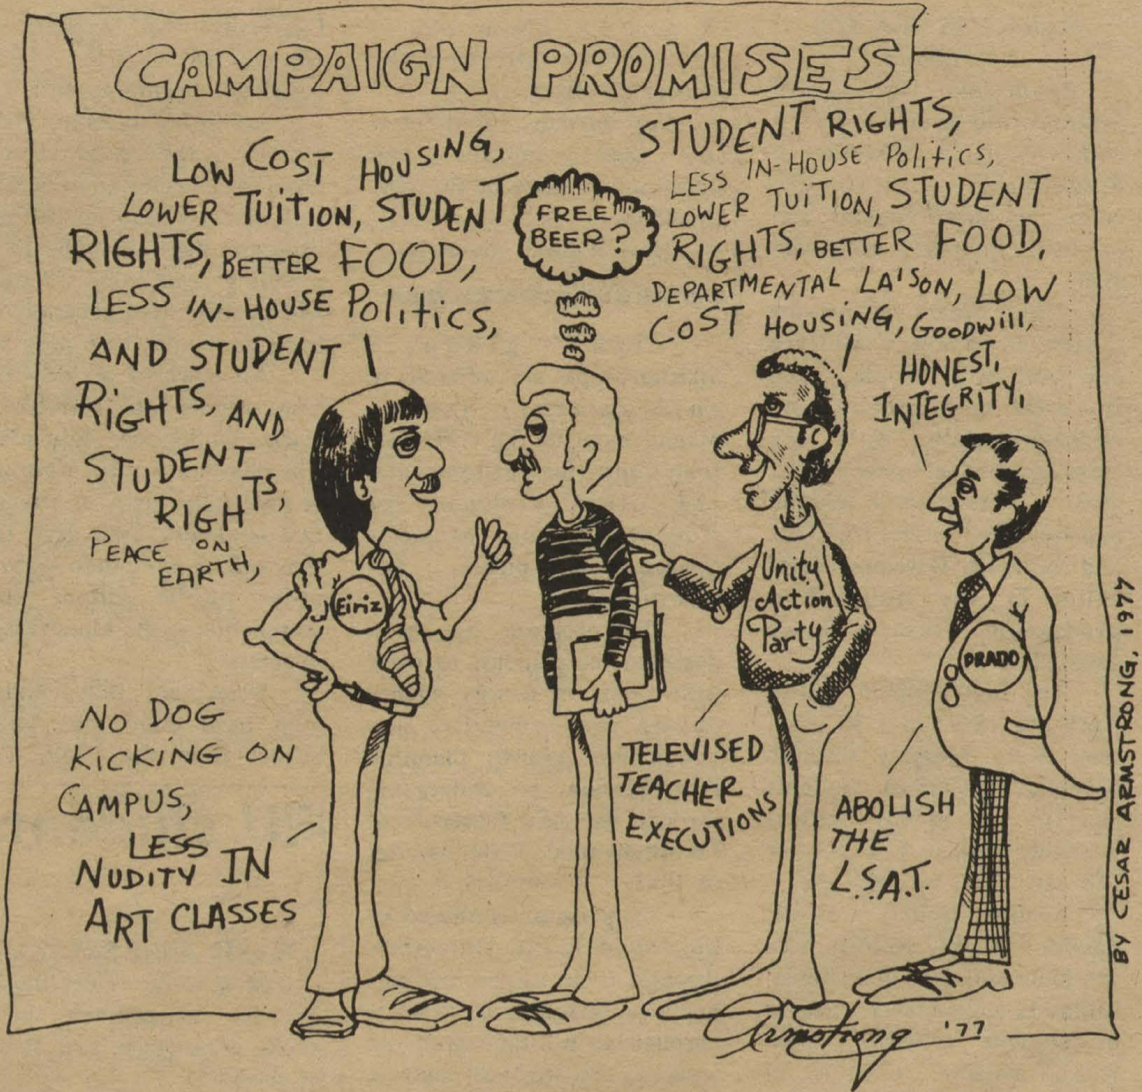 CAMPAIGN PROMISES
LOW COST HOUSING,
LOWER TUITION, STUDENT
RIGHTS, BETTER FOOD,
LESS IN-HOUSE Politics,
AND STUDENT
RIGHTS, AND
STUDENT
RIGHTS,
PEACE ON
EARTH,
FREE
BEER?
STUDENT RIGHTS,
LESS IN-HOUSE Politics,
LOWER TUITION, STUDENT
RIGHTS, BETTER FOOD,
DEPARTMENTAL LAISON, LOW
COST HOUSING, GOODWILL,
HONEST,
INTEGRITY,
Eiriz
Unity
Action
Party
PRADO
NO DOG
KICKING ON
CAMPUS,
LESS
NUDITY IN
ART CLASSES
TELEVISED
TEACHER
EXECUTIONS
ABOLISH
THE
L.S.A.T.
Armstrong '77
BY CESAR ARMSTRONG, 1977